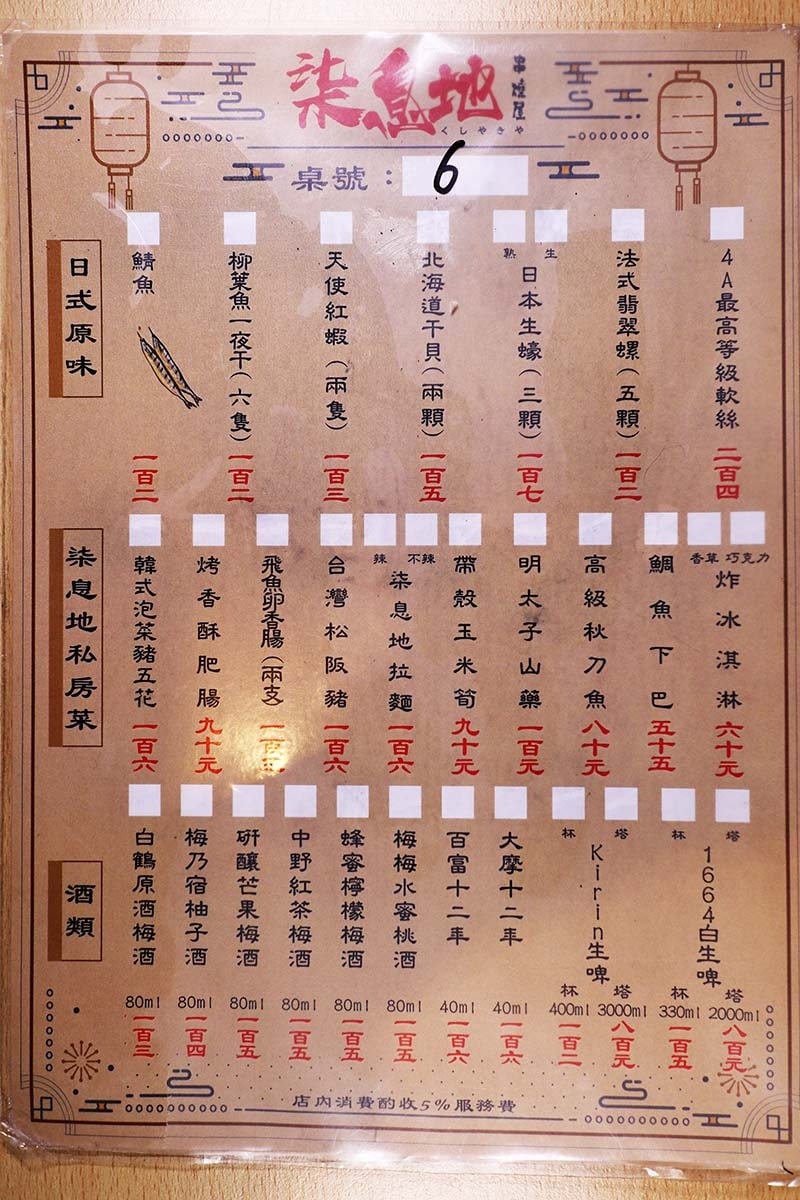 柒息地
串燒屋
くしやきや
桌號：6
日式原味
4A最高等級軟絲 二百四
法式翡翠螺(五顆) 一百二
熟 生
日本生蠔(三顆) 一百七
北海道干貝(兩顆) 一百五
天使紅蝦(兩隻) 一百三
柳葉魚一夜干(六隻) 一百二
鯖魚 一百二
柒息地私房菜
香草 巧克力
炸冰淇淋 六十元
鯛魚下巴 五十五
高級秋刀魚 八十元
明太子山藥 一百元
帶殼玉米筍 九十元
辣 不辣
柒息地拉麵 一百六
台灣松阪豬 一百六
飛魚卵香腸(兩支) 一百
烤香酥肥腸 九十元
韓式泡菜豬五花 一百六
酒類
杯 塔
1664白生啤
杯 330ml 一百五
塔 2000ml 八百元
杯 塔
Kirin生啤
杯 400ml 一百二
塔 3000ml 八百元
大摩十二年 40ml 一百六
百富十二年 40ml 一百六
梅梅水蜜桃酒 80ml 一百五
蜂蜜檸檬梅酒 80ml 一百五
中野紅茶梅酒 80ml 一百五
研釀芒果梅酒 80ml 一百五
梅乃宿柚子酒 80ml 一百四
白鶴原酒梅酒 80ml 一百三
店內消費酌收5%服務費